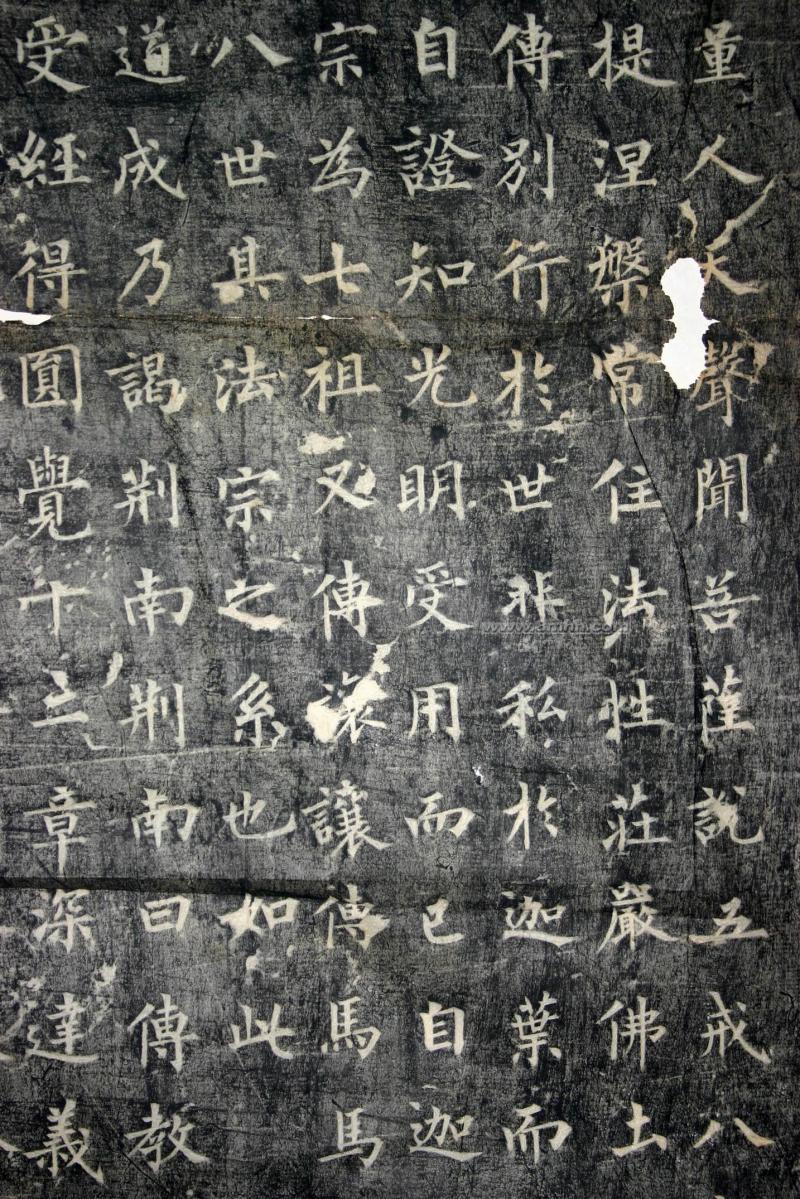 量人天聲聞菩薩說五戒八
提涅槃常住法性莊嚴佛土
傳別行於世非私於迦葉而
自證知光明受用而已自迦
宗為七祖又傳讓傳馬馬
八世具法宗之系也如此
道成乃謁荆南荆南曰傳教
受經得圓覺十三章深達義
www.amhn.co